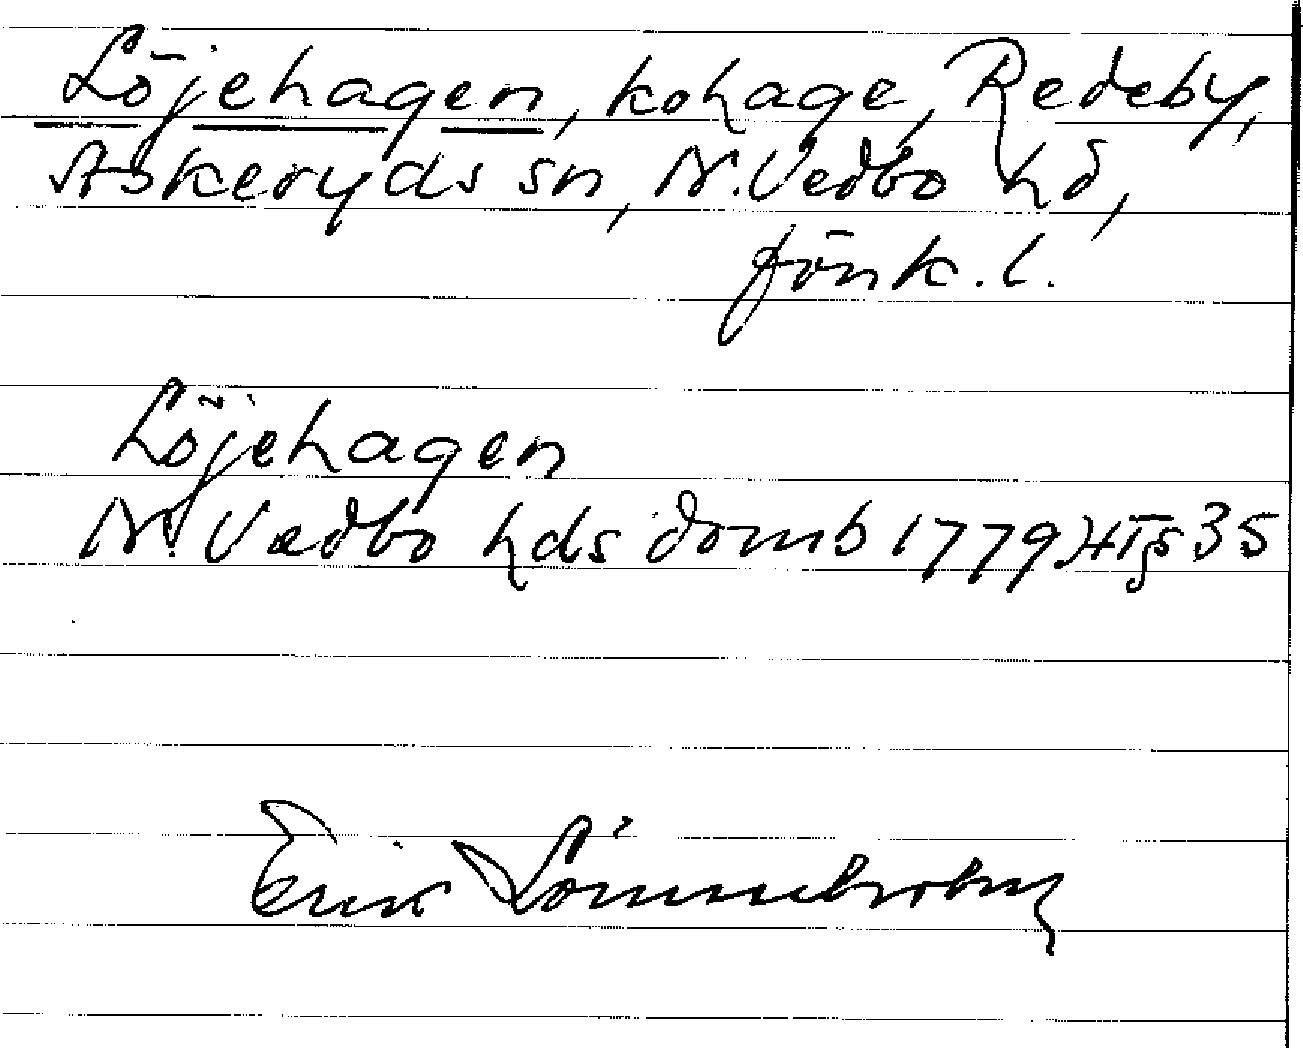 Löjehagen, kohage, Redeby,
Askeryds sn, N. Vedbo hd,
Jönk. l.
Löjehagen
N. Vedbo hds domb 1779 HT § 35
Erik